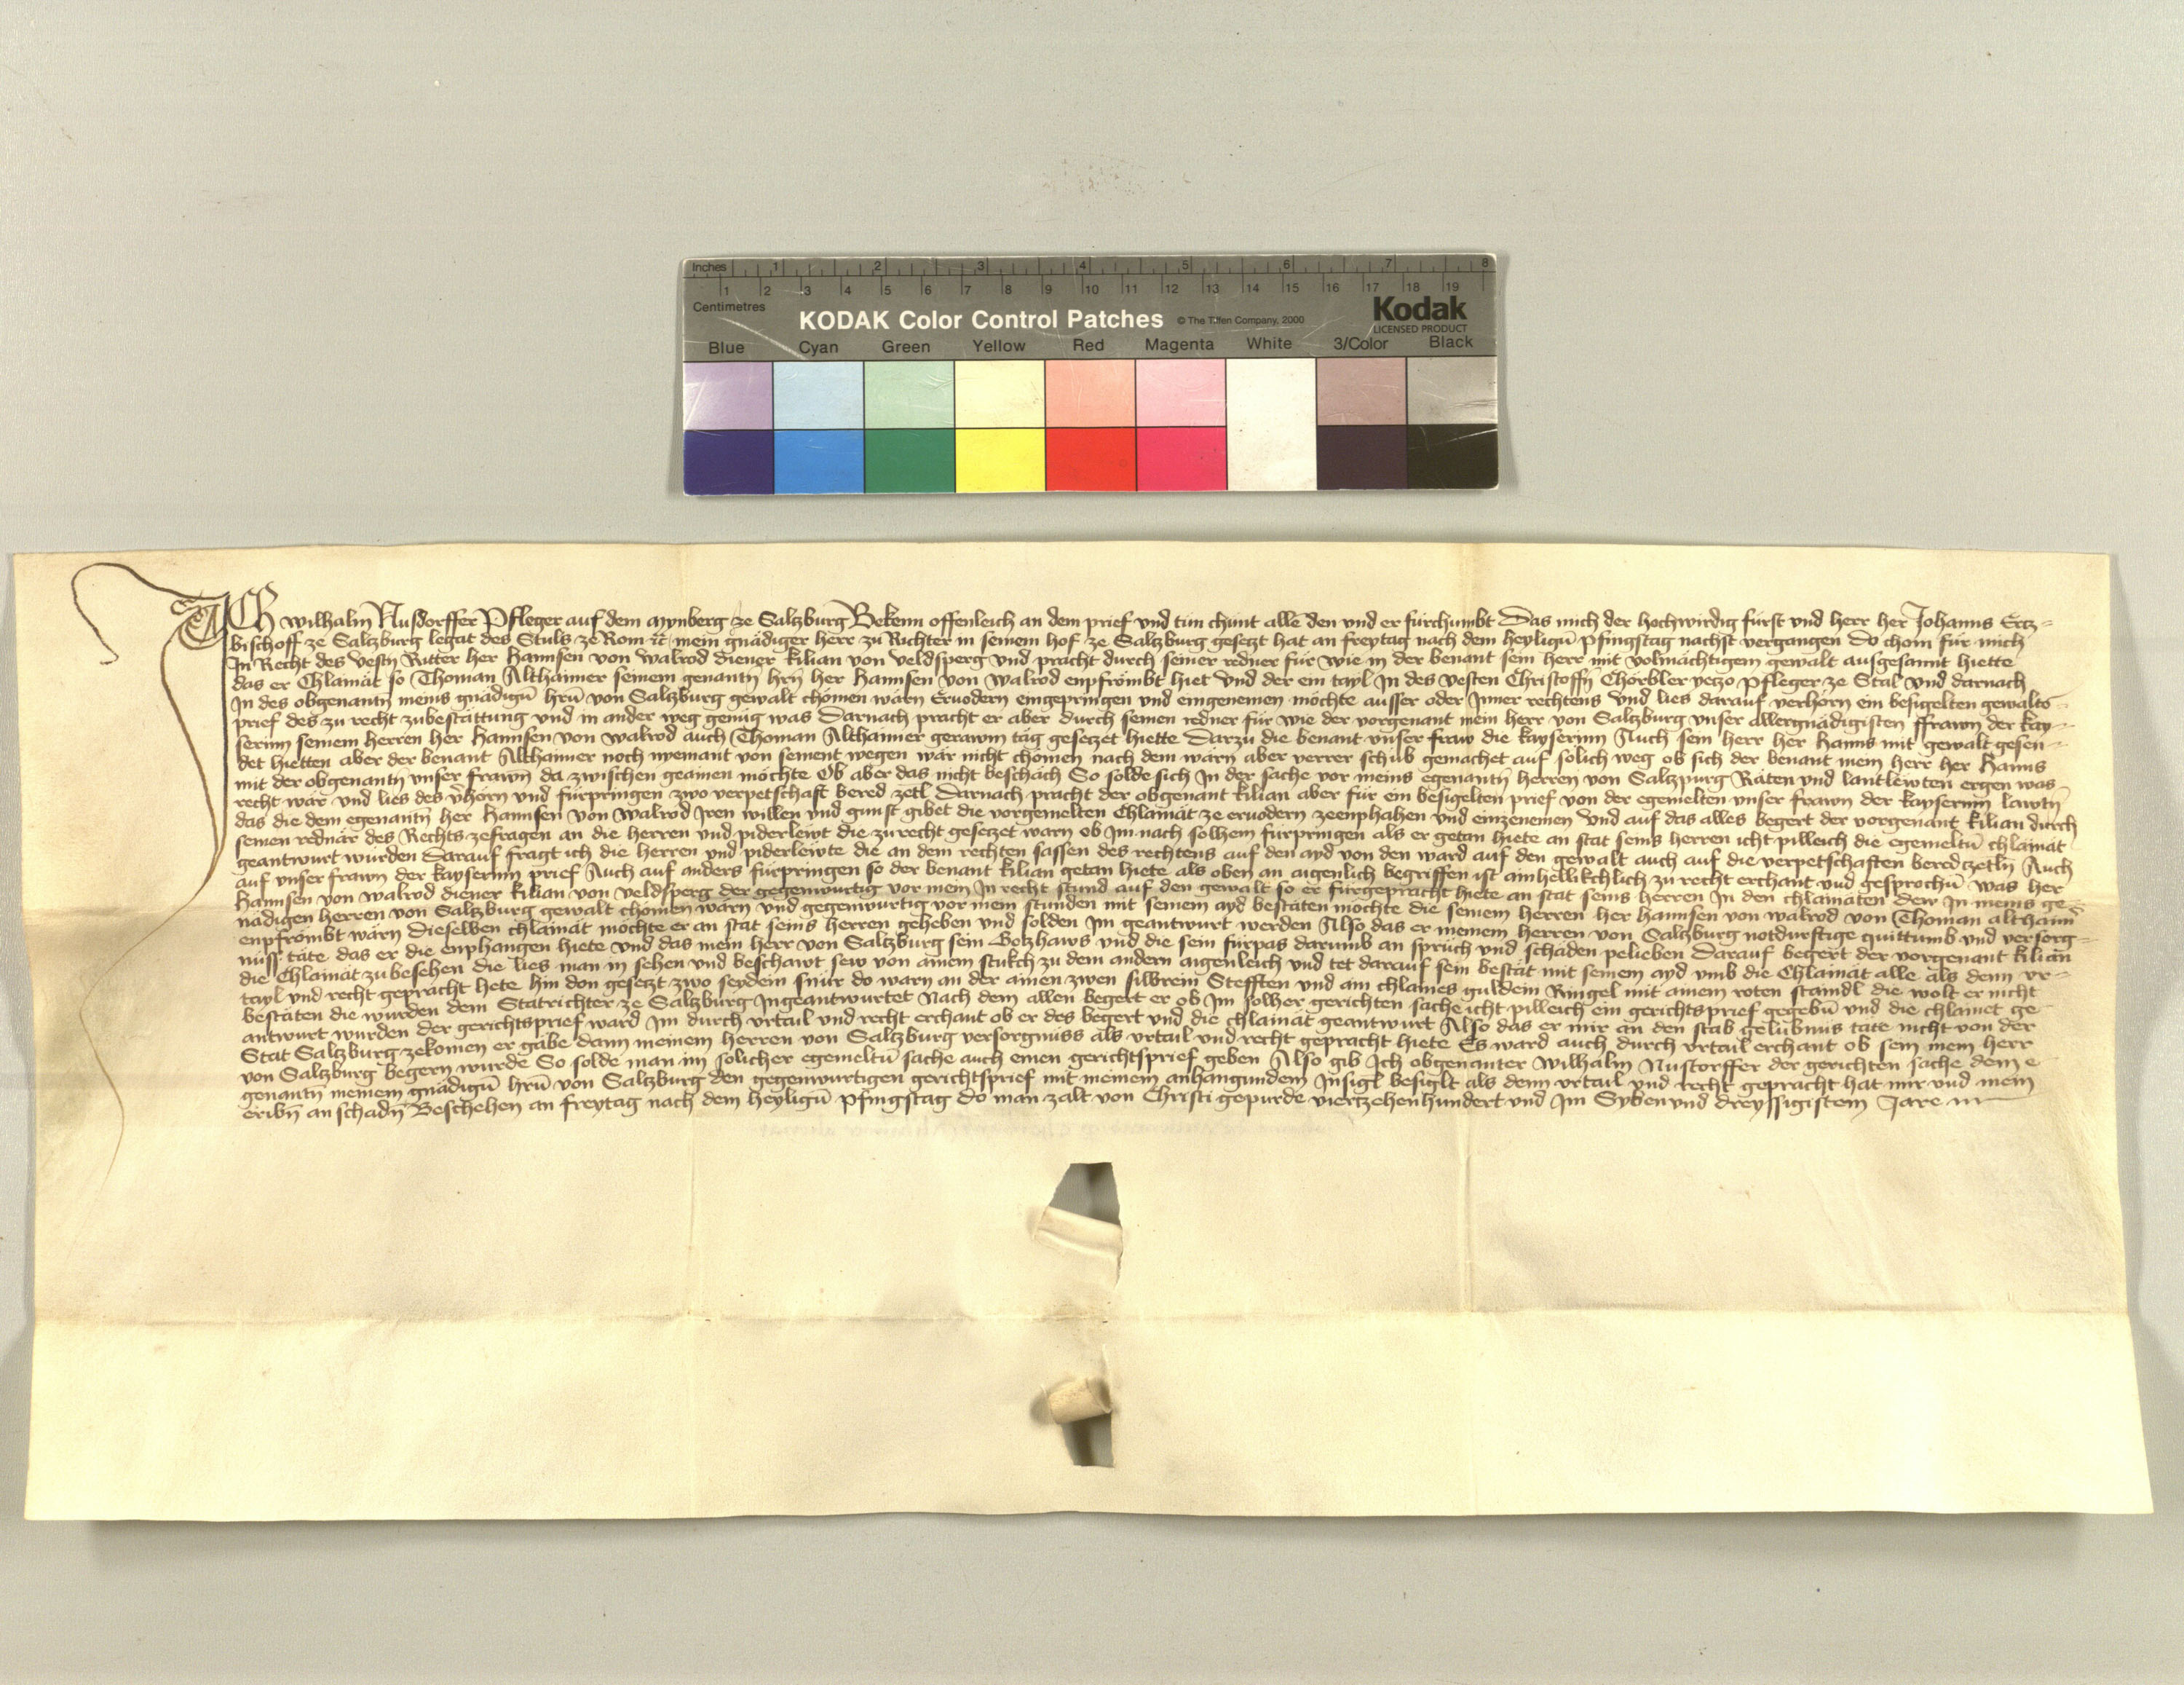 Inches 1 2 3 4 5 6 7 8
1 2 3 4 5 6 7 8 9 10 11 12 13 14 15 16 17 18 19
Centimetres
KODAK Color Control Patches © The Tiffen Company, 2000 Kodak
LICENSED PRODUCT
Blue Cyan Green Yellow Red Magenta White 3/Color Black
ICh wilhalm Nusdorffer Pfleger auf dem Mynberg ze Salzburg Bekenn offenleich an dem prief und tun chunt alle den und er fürchumbt Das mich der hochwirdig fürst und herr her Johanns Ertz-
bischoff ze Salzburg legat des Stuls ze Rom mein gnädiger herr zu Richter in seinem hof ze Salzburg gesetzt hat an freytag nach dem heyligñ Pfingstag nachst vergangen Do chom für mich
In Recht des vestñ Ritter her Hannsen von walrod diener kilian von veldsperg und pracht durch seiner redner für wie in der benant sein herr mit volmächtigem gewalt ausgesannt hiette
das er Chlainät so Thoman Althaimer seinem genantñ hrñ her Hannsen von walrod enpfrömbt hiet und der ein tayl In des vesten Christoffñ Chörbler yetzo Pfleger ze Stal und darnach
In des obgenantñ meins gnädigñ hrñ von Salzburg gewalt chomen wärn Ervodern eingepringen und eingenemen möchte ausser oder Inner rechtens und lies darauf verhörn ein besigelten gewalts-
prief des zu recht zubestättung und in ander weg genüg was Darnach pracht er aber durch seinen redner für wie der vorgenant mein herr von Salzburg unser allergnädigisten ffrawn der kay-
serinn seinem herren her Hannsen von walrod auch Thoman Althaimer gerawm täg gesetzet hiette Darzu die benant unser fraw die kayserinn Auch sein herr her Hanns mit gewalt gesen-
det hietten aber der benant Althaimer noch nyemant von seinent wegen wär nicht chomen nach dem wärn aber verrer schüb gemachet auf solich weg ob sich der benant mein herr her Hanns
mit der obgenantñ unser frawñ da zwischen geainen möchte Ob aber das nicht beschäch So solde sich In der sache vor meins egenantñ herren von Salzpurg Räten und lantlewten ergen was
recht wär und lies des vhörn und fürpringen zwo verpetschaft bered zetl Darnach pracht der obgenant kilian aber für ein besigelten prief von der egemelten unser frawn der kayserinn lawtñ
das die dem egenantñ her Hannsen von walrod Iren willen und gunst gibet die vorgemelten Chlainät ze ervodern zeenphahen und einzenemen und auf das alles begert der vorgenant kilian durch
seinen rednär des Rechts zefragen an die herren und piderlewt die zu recht gesetzet warn ob Im nach solhem fürpringen als er getan hiete an stat seins herren icht pilleich die egemeltñ chlainät
geantwurt wurden Darauf fragt ich die herren und piderlewte die an dem rechten sassen des rechtens auf den ayd von den ward auf den gewalt auch auf die verpetschaften beredczetlñ Auch
auf unser frawn der kayserinn prief Auch auf anders fürpringen so der benant kilian getan hiete als oben an aigenlich begriffen ist ainhellikchlich zu recht erchant und gesprochñ was her
Hannsen von walrod diener kilian von veldsperg der gegenwurtig vor mein In recht stund auf den gewalt so er fürgepracht hiete an stat seins herren In den chlainäten dew In meins ge-
nädigen herren von Salzburg gewalt chomen wärn und gegenwurtig vor mein stunden mit seinem ayd bestäten möchte die seinem herren her Hannsen von walrod von Thoman althaim
enpfrömbt wärn Dieselben chlainät möchte er an stat seins herren geheben und solden Im geantwurt werden Also das er meinem herren von Salzburg notdurftige quittumb und versorg-
nüss täte das er die enphangen hiete und das mein herr von Salzburg sein Gotzhaws und die sein fürpas darumb an sprüch und schäden pelieben Darauf begert der vorgenant kilian
die Chlainät zu besehen die lies man in sehen und beschawt sew von ainem stukch zu dem andern aigenleich und tet darauf sein bestät mit seinem ayd umb die Chlainät alle als denn vr-
tayl und recht gepracht hete hin don gesetzt zwo seydein snür do warn an der ainen zwen silbrein Stefften und ain chlaines guldein Ringel mit ainem roten staindl die wolt er nicht
bestäten die wurden dem Statrichter ze Salzburg Ingeantwurtet Nach dem allen begert er ob Im solher gerichten sache icht pilleich ein gerichtsprief gegebñ und die chlainet ge-
antwurt wurden der gerichtsprief ward Im durch urtail und recht erchant ob er des begert und die chlainät geantwurt Also das er mir an den stab gelübnus täte nicht von der
Stat Salzburg zekomen er gäbe dann meinem herren von Salzburg versorgnüss als urtail und recht gepracht hiete Es ward auch durch urtail erchant ob sein mein herr
von Salzburg begern wurde So solde man im solicher egemeltñ sache auch einen gerichtsprief geben Also gib Ich obgenanter Wilhalm Nustorffer der gerichten sache dem e
genantñ meinem gnädigñ hrñ von Salzburg den gegenwurtigen gerichtsprief mit meinem anhangundem Insigl besiglt als denn urtail und recht gepracht hat mir und mein
eribñ an schadñ Beschehen an freytag nach dem heyligñ Pfingstag do man zalt von Christi gepurde viertzehenhundert und Im Syben und dreyssigistem Jare